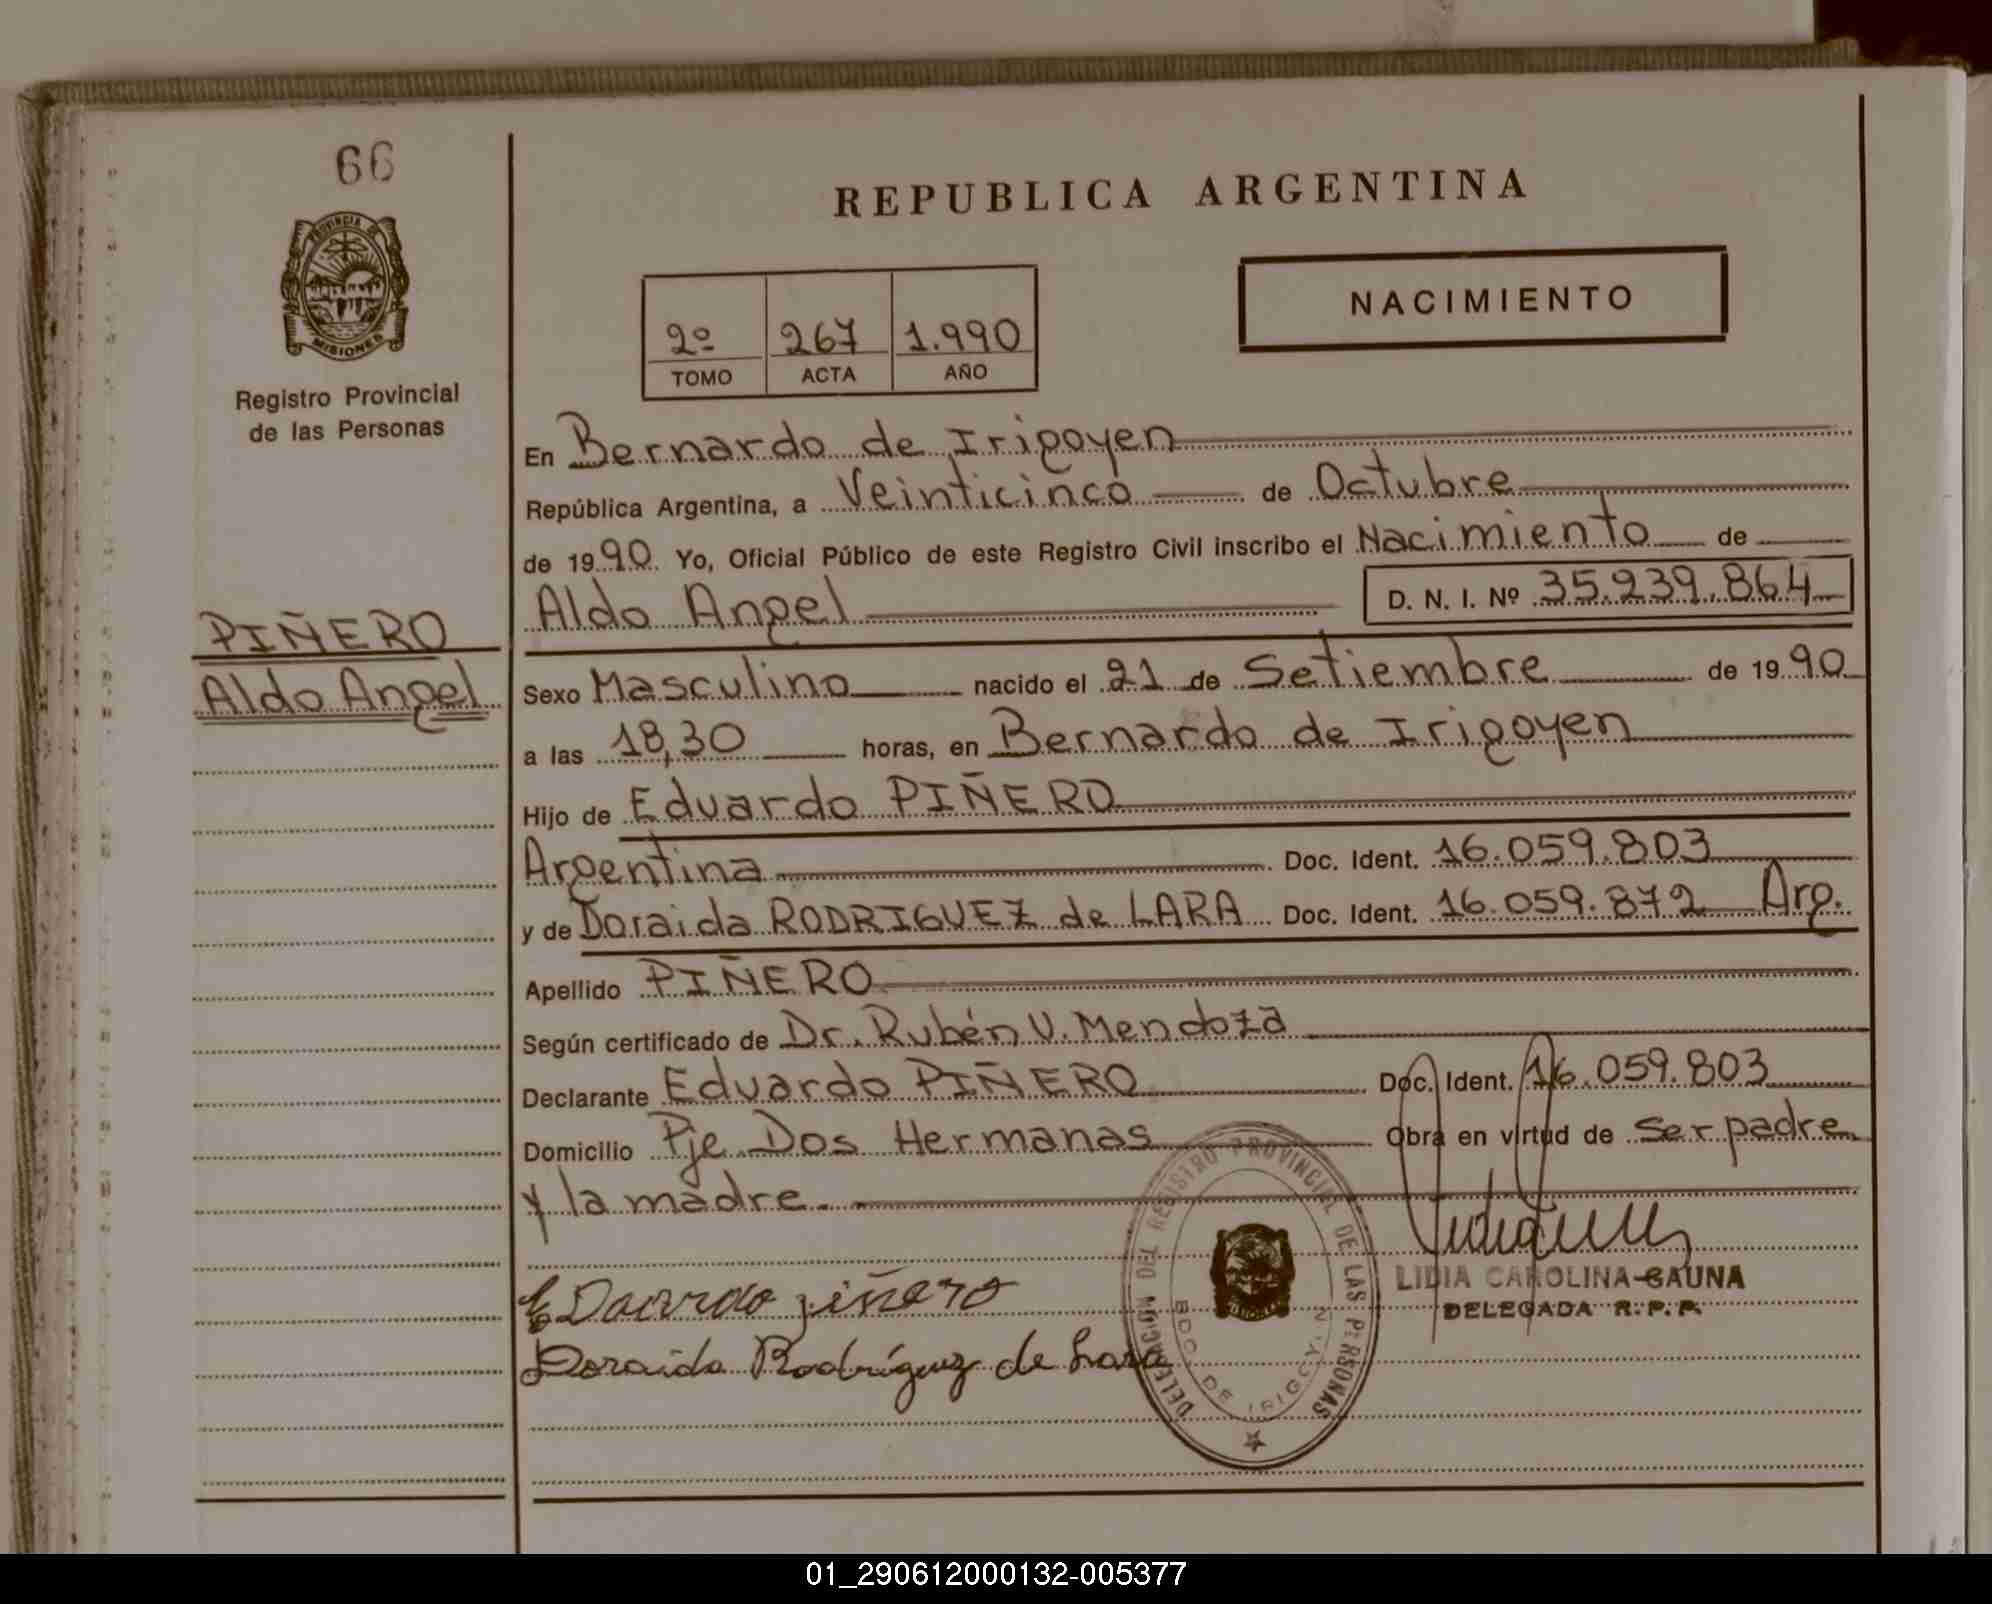 66
PROVINCIA DE
MISIONES
Registro Provincial
de las Personas
PIÑERO
Aldo Angel
REPUBLICA ARGENTINA
NACIMIENTO
2º 267 1.990
TOMO ACTA AÑO
En Bernardo de Irigoyen
República Argentina, a Veinticinco de Octubre
de 1990. Yo, Oficial Público de este Registro Civil inscribo el Nacimiento de
Aldo Angel D. N. I. Nº 35.239.864
Sexo Masculino nacido el 21 de Setiembre de 1990
a las 18,30 horas, en Bernardo de Irigoyen
Hijo de Eduardo PIÑERO
Argentina Doc. Ident. 16.059.803
y de Doraida RODRIGUEZ de LARA Doc. Ident. 16.059.872 Arg.
Apellido PIÑERO
Según certificado de Dr. Rubén V. Mendoza
Declarante Eduardo PIÑERO Doc. Ident. 16.059.803
Domicilio Pje Dos Hermanas Obra en virtud de ser padre
y la madre.
EDuardo piñero
Doraida Rodríguez de Lara
DELEGACION DEL REGISTRO PROVINCIAL DE LAS PERSONAS
BDO. DE IRIGOYEN
LIDIA CAROLINA GAUNA
DELEGADA R.P.P.
01_290612000132-005377